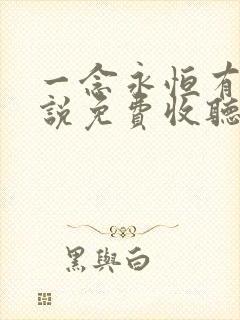 一念永恒有
說免費收聽
黑與白